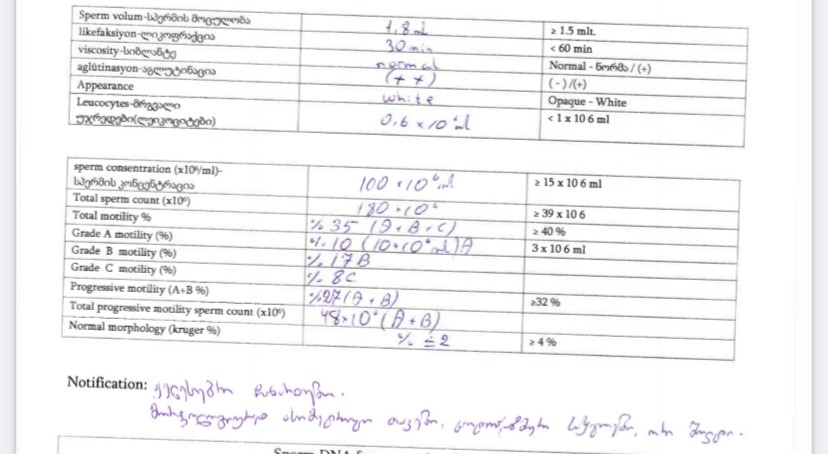 Sperm volum-სპერმის მოცულობა 1,8 ml ≥ 1.5 mlt.
likefaksiyon-ლიკოფრაქცია 30 min < 60 min
viscosity-სიბლანტე normal Normal - ნორმა / (+)
aglütinasyon-აგლუტინაცია (++) (-)/(+)
Appearance white Opaque - White
Leucocytes-მრგვალი 0,6 x 10⁶ ml < 1 x 10 6 ml
უჯრედები(ლეიკოციტები)
sperm consentration (x10⁶/ml)- 100 x 10⁶ ml ≥ 15 x 10 6 ml
სპერმის კონცენტრაცია
Total sperm count (x10⁶) 180 x 10⁶ ≥ 39 x 10 6
Total motility % % 35 (A+B+C) ≥ 40 %
Grade A motility (%) % 10 (10x10⁶ ml) A 3 x 10 6 ml
Grade B motility (%) % 17 B
Grade C motility (%) % 8 C
Progressive motility (A+B %) %27 (A+B) ≥32 %
Total progressive motility sperm count (x10⁶) 48x10⁶ (A+B)
Normal morphology (kruger %) % ≤2 ≥ 4 %
Notification:
Sperm DNA